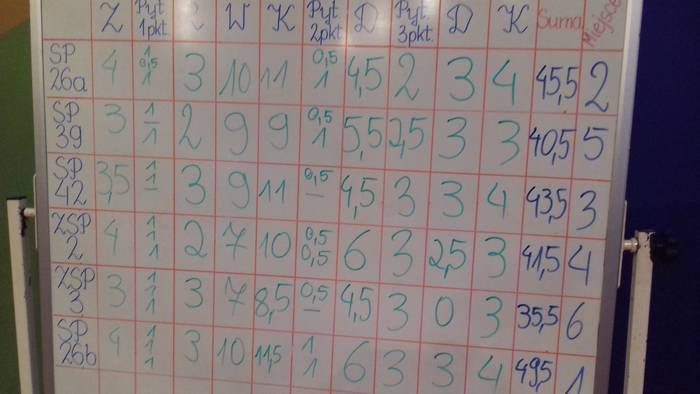 Z Pyt. 1pkt. W K Pyt. 2pkt. D Pyt. 3pkt. D K Suma Miejsce
SP 26a 4 1 0,5 1 3 10 11 0,5 1 4,5 2 3 4 45,5 2
SP 39 3 1 1 2 9 9 0,5 1 5,5 2,5 3 3 40,5 5
SP 42 3,5 1 – 3 9 11 0,5 – 4,5 3 3 4 43,5 3
ZSP 2 4 1 1 1 2 7 10 0,5 0,5 6 3 2,5 3 41,5 4
ZSP 3 3 1 1 1 3 7 8,5 0,5 – 4,5 3 0 3 35,5 6
SP 26b 4 1 1 1 3 10 11,5 1 1 6 3 3 4 49,5 1